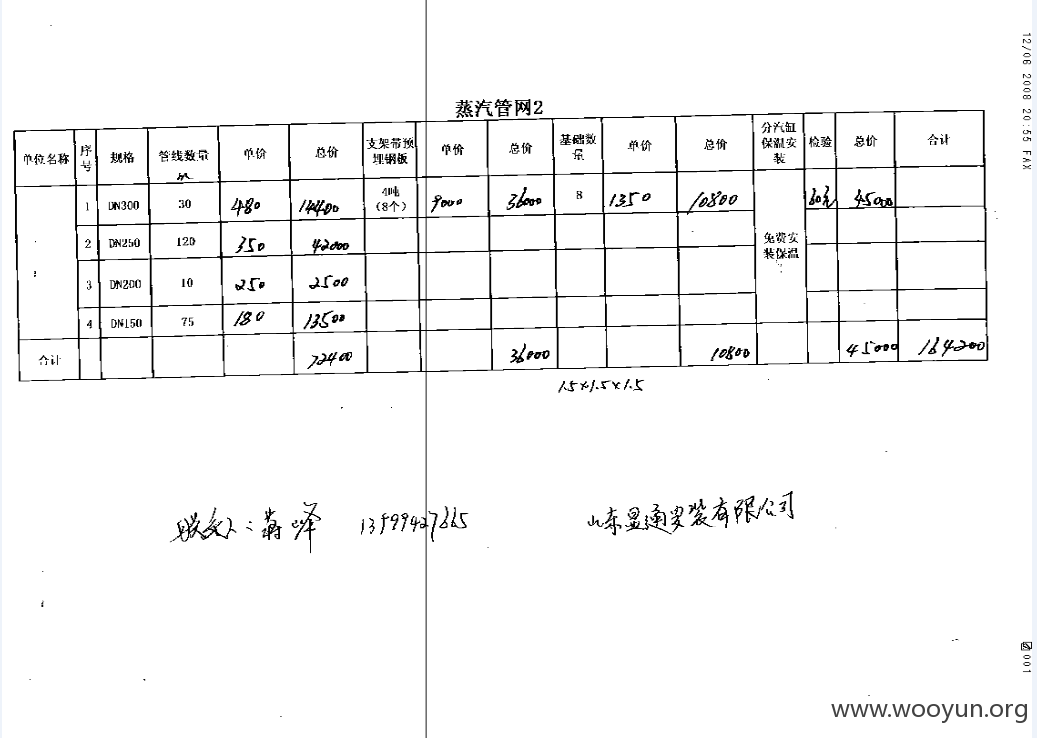 12/06 2008 20:55 FAX
蒸汽管网2
单位名称 序号 规格 管线数量 单价 总价 支架带预埋钢板 单价 总价 基础数量 单价 总价 分汽缸保温安装 检验 总价 合计
1 DN300 30 480 14400 4吨(8个) 9000 36000 8 1350 10800 免费安装保温 45000
2 DN250 120 350 42000
3 DN200 10 250 2500
4 DN150 75 180 13500
合计 72400 36000 10800 45000 164200
1.5×1.5×1.5
联系人:蒋峰
山东显通安装有限公司
001
www.wooyun.org